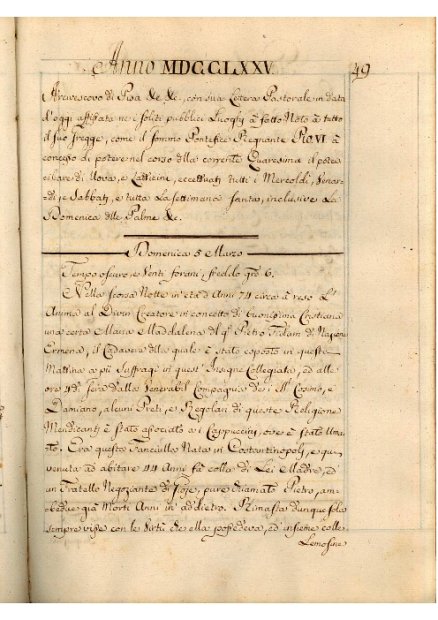 Anno MDCCLXXV. 49
Arcivescovo di Pisa &c &c., con sua Lettera Pastorale in data
d'oggi affissata ne i soliti pubblici Luoghi à fatto Noto à tutto
il suo Gregge, come il Sommo Pontefice Regnante PIO VI à
concesso di potere nel corso della corrente Quaresima il potersi
cibare di Uova, e Latticini, eccettuati tutti i Mercoldì, Vener-
dì, e Sabbati, e tutta La Settimana Santa, inclusive La
Domenica delle Palme &c.
Domenica 5 Marzo
Tempo oscuro e Venti forani, freddo gr. 6.
Nella scorsa Notte in età d'Anni 74 circa à reso L'
Anima al Divin Creatore in concetto di buonissima Cristiana
una certa Maria Maddalena del q. Pietro di Nazione
Ermena, il Cadavere della quale è stato esposto in questa
Mattina a più Suffragi in quest'Insigne Collegiata, ed alle
ore sera dalla Venerabil Compagnia de SS. Cosimo, e
Damiano, alcuni Preti, e Regolari di queste Religione
Mendicanti è stato associato a i Cappuccini, ove è stato
Era questa Fanciulla Nata in Costantinopoli, e qui
venuta ad abitare 44 Anni fà colla di Lei Madre, ed
un Fratello Negoziante di Gioje, pure chiamato Pietro, am-
bedue già Morti Anni in addietro. Rimasta dunque sola
sempre visse con le Virtù che ella possedeva, ed insieme colle
Lemosine